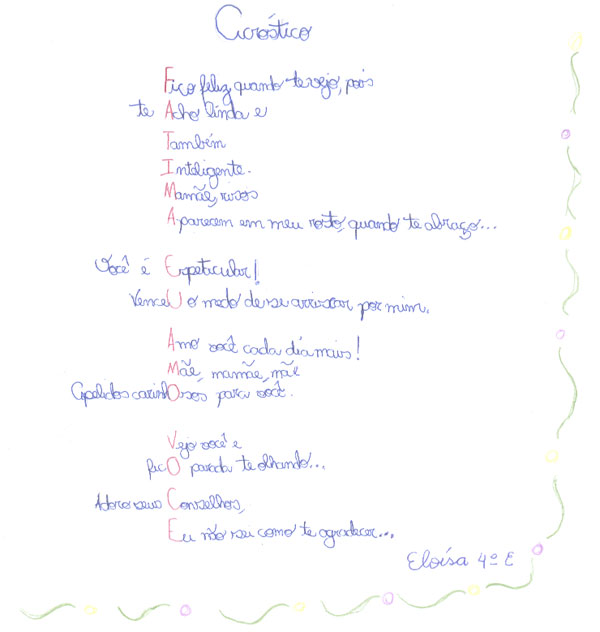 Acróstico
Fico feliz quando te vejo, pois
te Acho linda e
Também
Inteligente.
Mamãe, risos
Aparecem em meu rosto, quando te abraço...
Você é Espeticular!
VenceU o medo de se arriscar por mim.
Amo você cada dia mais!
Mãe, mamãe, mãe
Apelidos carinhOsos para você.
Vejo você e
ficO parada te olhando...
Adoro seus Conselhos,
Eu não sei como te agradecer...
Eloísa 4º E